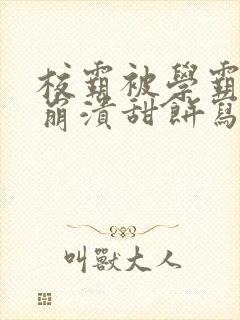 校霸被學霸
崩潰甜餅寫
叫獸大人